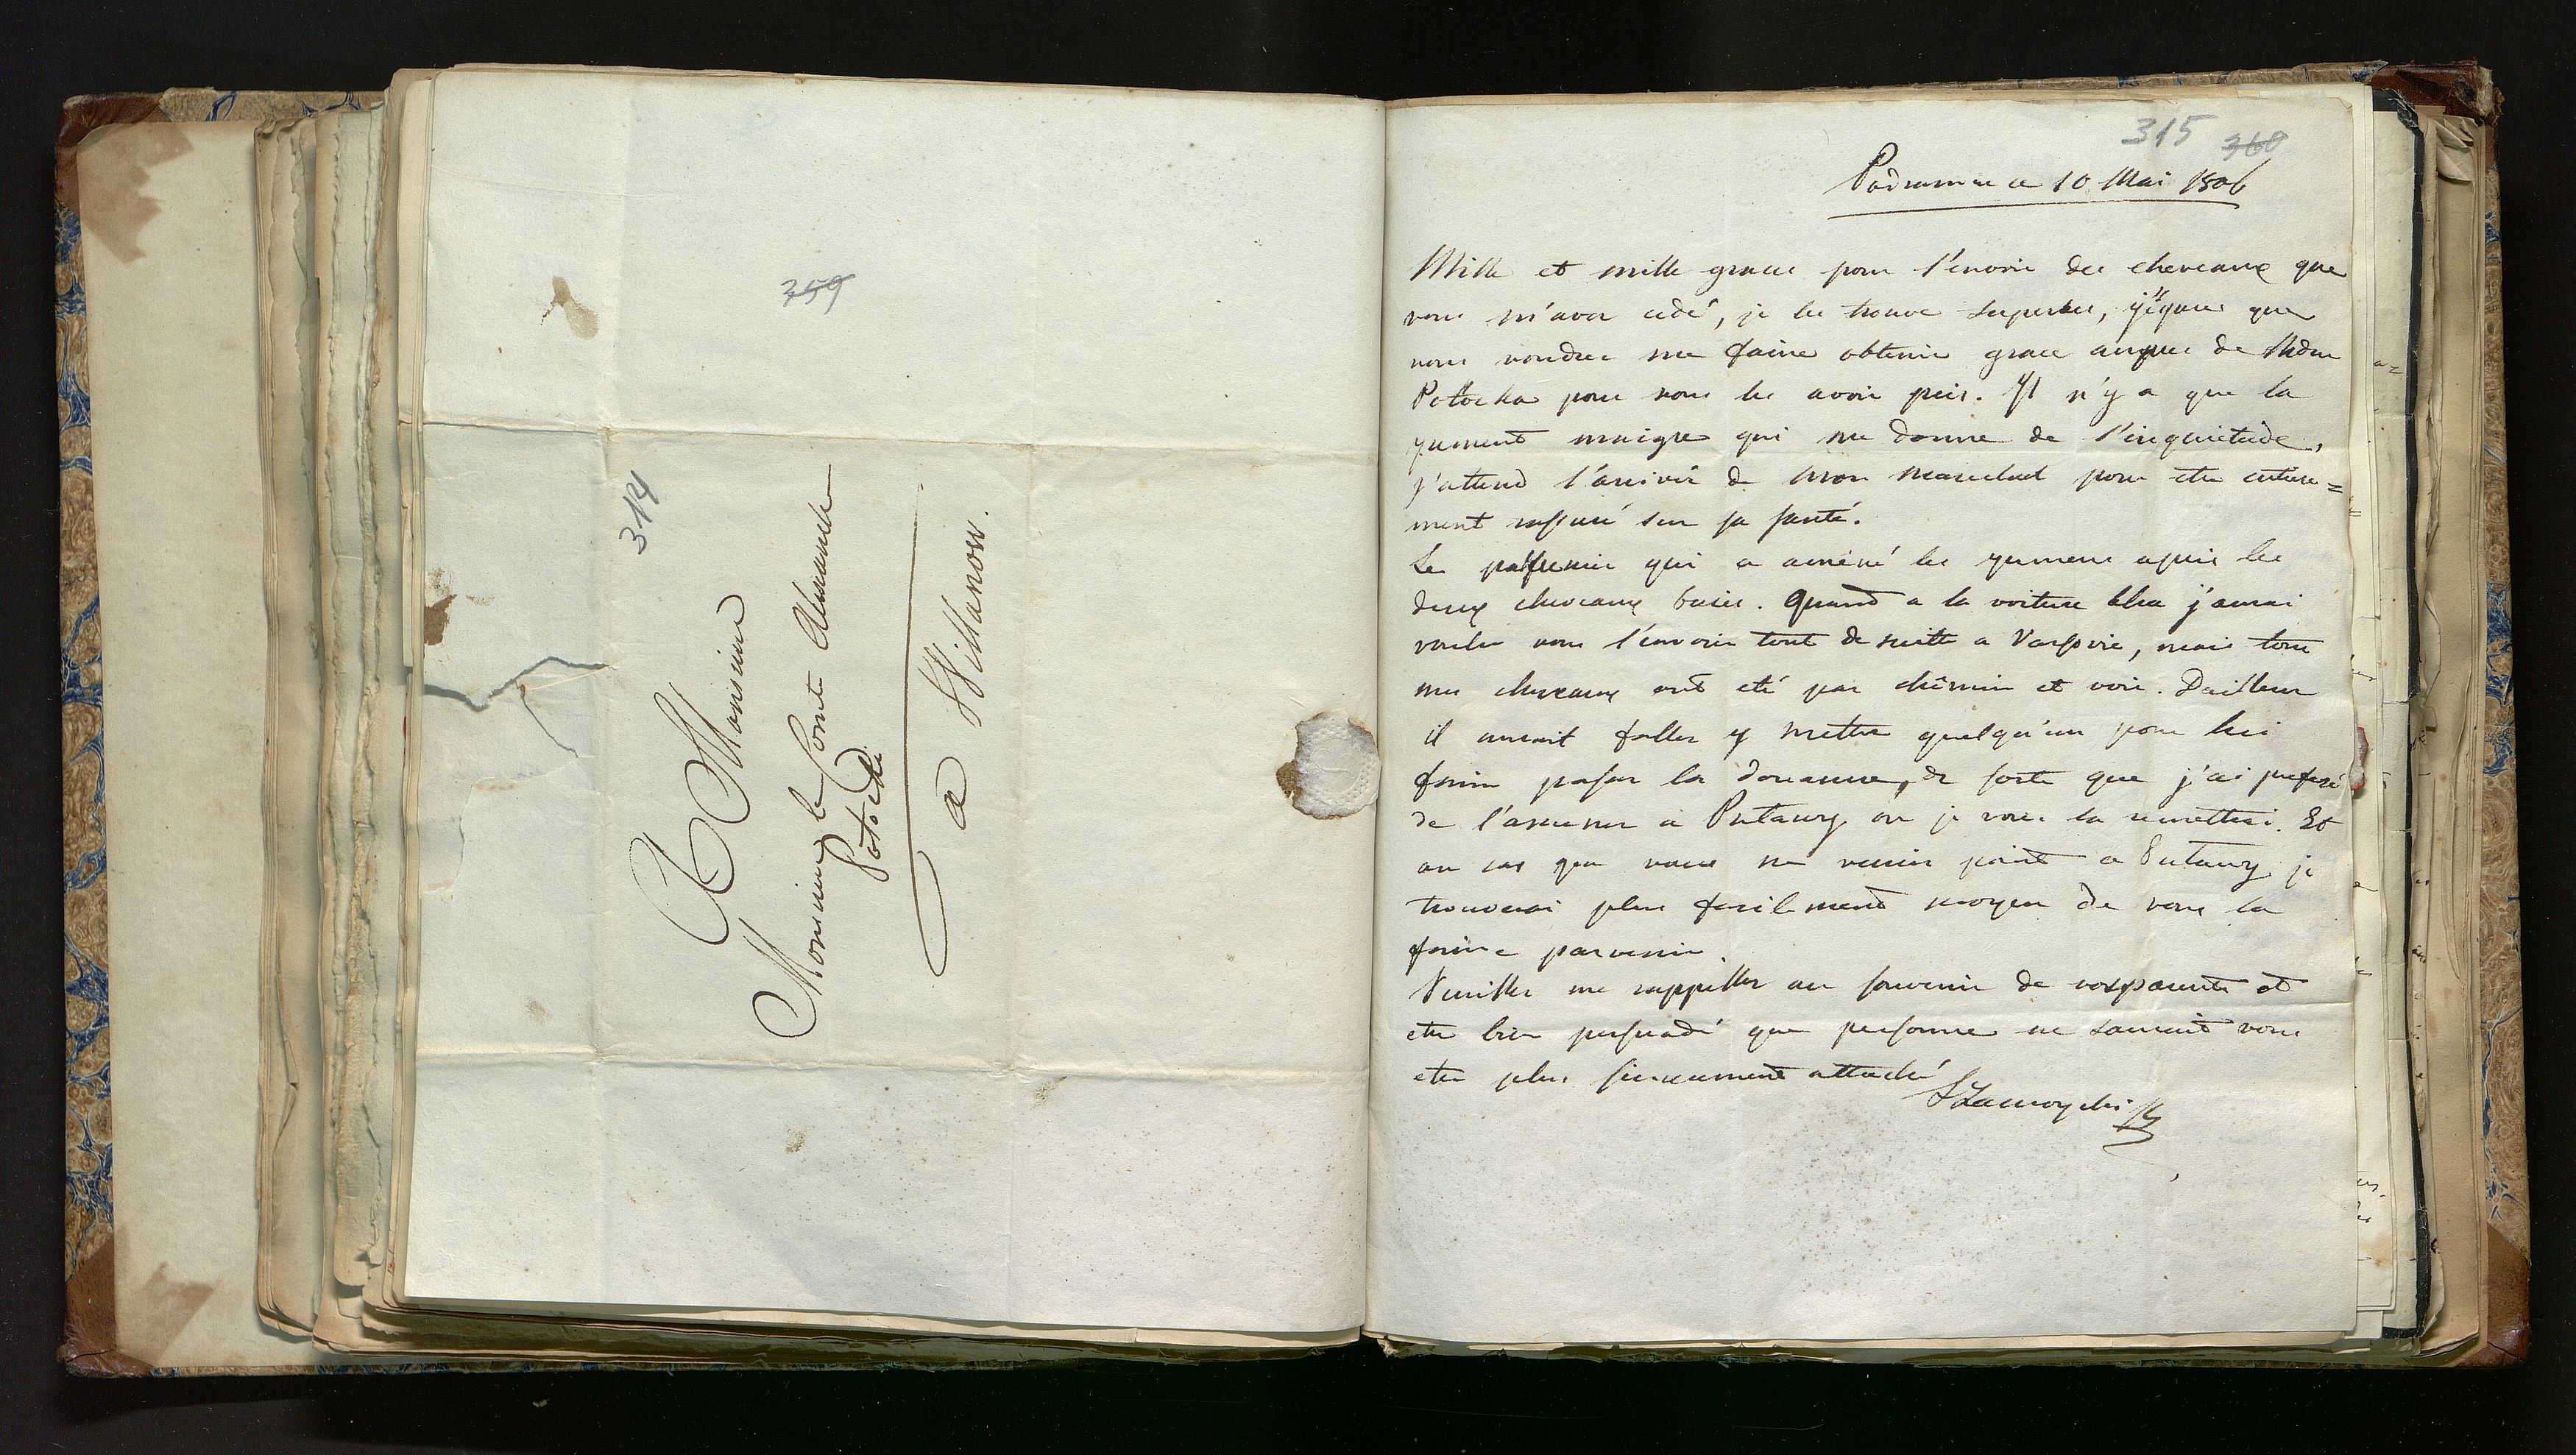 359
314
A Monsieur
Monsieur le Comte Alexandre
Potocki
a Willanow.
315 360
ce 10 Mai 1806
Mille et mille graces pour l'envoie des cheveaux que
vous m'avez cedé, je les trouve superbes, que
vous voudrez me faire obtenir grace aupres de Mdme
Potocka pour vous les avoir pris. Il n'y a que la
jument maigre qui me donne de l'inquietude,
j'attend l'arrivée de mon marechal pour etre entiere=
ment rassuré sur sa santé.
Le palfrenier qui a amené les jumens a pris les
deux cheveaux baies. Quand a la voiture bleu j'aurai
voulu vous l'envoier tout de suitte a Varsovie, mais tous
mes cheveaux ont eté par chêmin et voie. Dailleur
il auroit fallu y mettre quelqu'un pour lui
faire passer la douanne, de sorte que j'ai preferé
de l'amener a Pulawy ou je vous la remettrai. Et
au cas que vous ne veniez point a Pulawy je
trouverai plus facilement moyen de vous la
faire parvenir.
Veuillez me rappeller au souvenir de vos parents et
etre bien persuadé que personne ne sauroit vous
etre plus sincerement attaché
SZamoyski